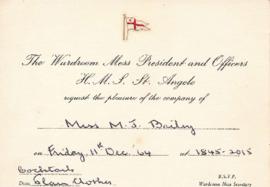 The Wardroom Mess President and Officers
H.M.S. St. Angelo
request the pleasure of the company of
Miss M. J. Bailey
on Friday, 11th Dec. 64 at 1845-2015
Cocktails
R.S.V.P.
Dress Plain Clothes
Wardroom Mess Secretary